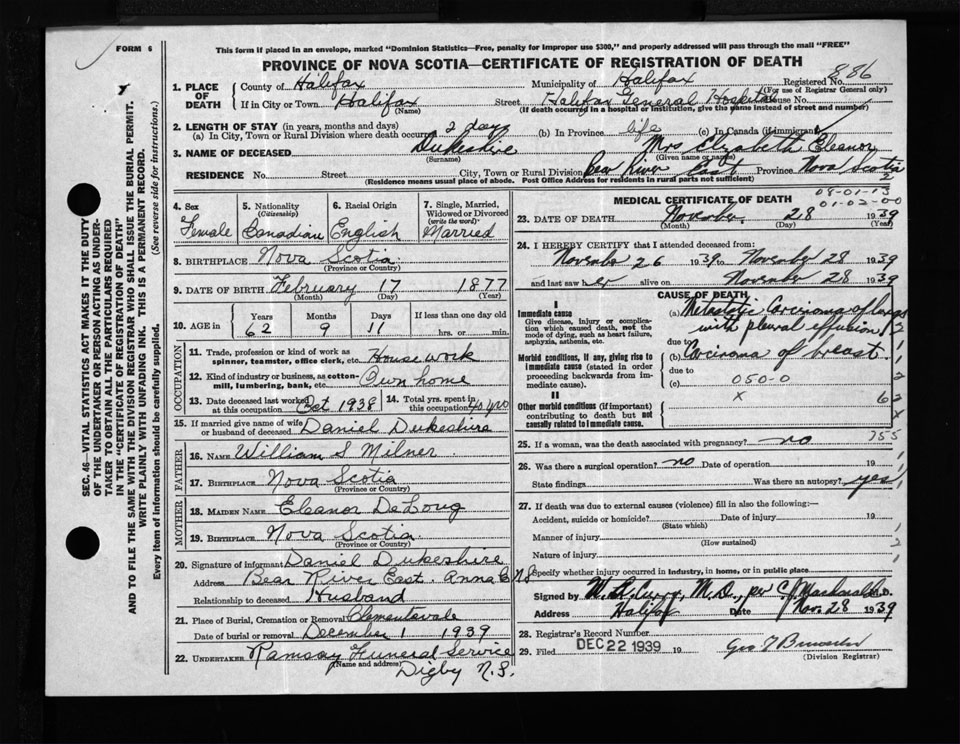 FORM 6
This form if placed in an envelope, marked "Dominion Statistics—Free, penalty for improper use $300," and properly addressed will pass through the mail "FREE"
PROVINCE OF NOVA SCOTIA—CERTIFICATE OF REGISTRATION OF DEATH
SEC. 46—VITAL STATISTICS ACT MAKES IT THE DUTY
OF THE UNDERTAKER OR PERSON ACTING AS UNDER-
TAKER TO OBTAIN ALL THE PARTICULARS REQUIRED
IN THE "CERTIFICATE OF REGISTRATION OF DEATH"
AND TO FILE THE SAME WITH THE DIVISION REGISTRAR WHO SHALL ISSUE THE BURIAL PERMIT.
WRITE PLAINLY WITH UNFADING INK. THIS IS A PERMANENT RECORD.
Every item of Information should be carefully supplied. (See reverse side for instructions.)
1. PLACE OF DEATH
County of Halifax Municipality of Halifax Registered No. 886
(For use of Registrar General only)
If in City or Town Halifax Street Halifax General Hospital House No.
(If death occurred in a hospital or institution, give the name instead of street and number)
2. LENGTH OF STAY (in years, months and days)
(a) In City, Town or Rural Division where death occurred 2 days (b) In Province life (c) In Canada (if immigrant)
3. NAME OF DECEASED Dukeshire Mrs Elizabeth Eleanor
(Surname) (Given name or names)
RESIDENCE No. Street City, Town or Rural Division Bear River East Province Nova Scotia
(Residence means usual place of abode. Post Office Address for residents in rural parts not sufficient)
4. Sex Female
5. Nationality (Citizenship) Canadian
6. Racial Origin English
7. Single, Married, Widowed or Divorced (write the word) Married
8. BIRTHPLACE Nova Scotia
(Province or Country)
9. DATE OF BIRTH February 17 1877
(Month) (Day) (Year)
10. AGE in Years Months Days If less than one day old
62 9 11 hrs. or min.
OCCUPATION
11. Trade, profession or kind of work as spinner, teamster, office clerk, etc. Housework
12. Kind of industry or business, as cotton-mill, lumbering, bank, etc. Own home
13. Date deceased last worked at this occupation Oct 1938
14. Total yrs. spent in this occupation 40 yrs
15. If married give name of wife or husband of deceased Daniel Dukeshire
FATHER
16. NAME William S Milner
17. BIRTHPLACE Nova Scotia
(Province or Country)
MOTHER
18. MAIDEN NAME Eleanor DeLong
19. BIRTHPLACE Nova Scotia
(Province or Country)
20. Signature of informant Daniel Dukeshire
Address Bear River East. Anna C N.S
Relationship to deceased Husband
21. Place of Burial, Cremation or Removal Clementsvale
Date of burial or removal December 1 1939
22. UNDERTAKER Ramsay Funeral Service
(Name and address) Digby N.S.
MEDICAL CERTIFICATE OF DEATH
08-01-13
01-02-00
23. DATE OF DEATH November 28 1939
(Month) (Day) (Year)
24. I HEREBY CERTIFY that I attended deceased from:
November 26 1939 to November 28 1939
and last saw her alive on November 28 1939
CAUSE OF DEATH
I
Immediate cause
Give disease, injury or complication which caused death, not the mode of dying, such as heart failure, asphyxia, asthenia, etc.
(a) Metastatic Carcinoma of lungs with pleural effusion
due to
Morbid conditions, if any, giving rise to immediate cause (stated in order proceeding backwards from immediate cause).
(b) Carcinoma of breast
due to
(c) 050-0
II
Other morbid conditions (if important) contributing to death but not causally related to immediate cause.
x
25. If a woman, was the death associated with pregnancy? no
26. Was there a surgical operation? no Date of operation 19
State findings Was there an autopsy? yes
27. If death was due to external causes (violence) fill in also the following:—
Accident, suicide or homicide? Date of injury 19
(State which)
Manner of injury
(How sustained)
Nature of injury
Specify whether injury occurred in industry, in home, or in public place
Signed by M.D., per C J Macdonald M.D.
Address Halifax Date Nov. 28 1939
28. Registrar's Record Number
29. Filed DEC 22 1939 19
(Division Registrar)